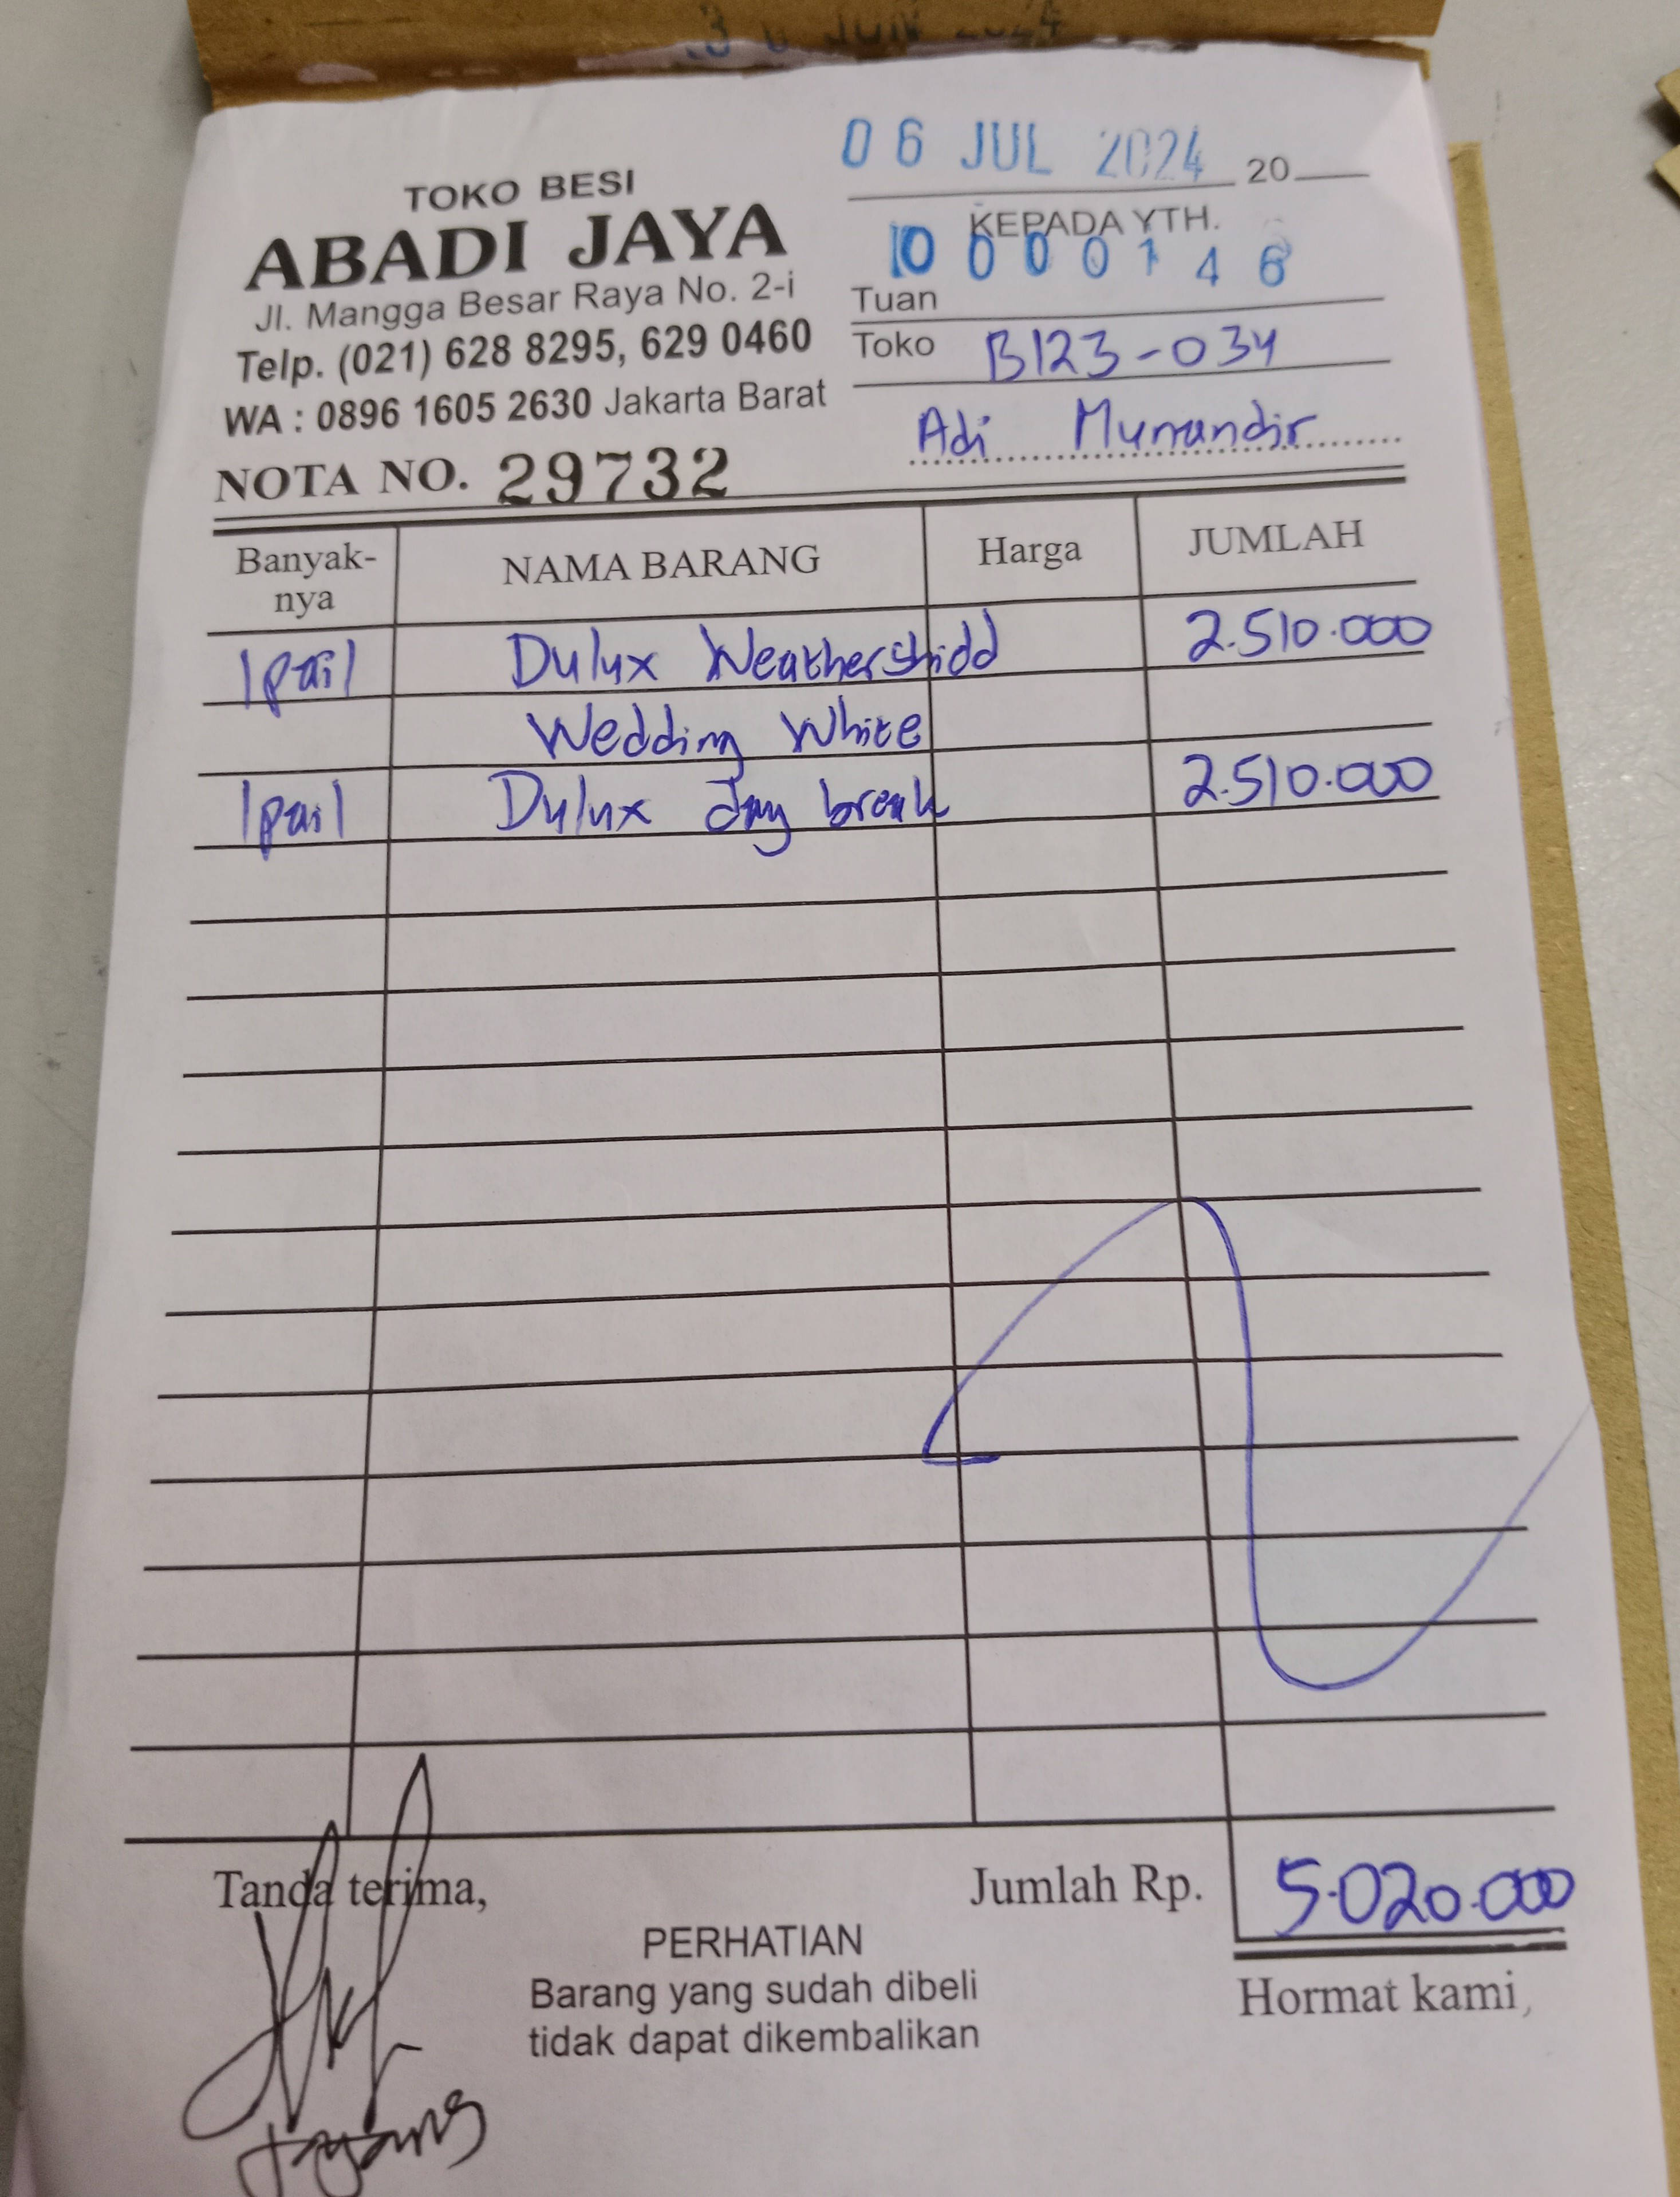 3 0 JUN 2024
06 JUL 2024 20
TOKO BESI
ABADI JAYA
Jl. Mangga Besar Raya No. 2-i
Telp. (021) 628 8295, 629 0460
WA : 0896 1605 2630 Jakarta Barat
NOTA NO. 29732
KEPADA YTH.
10 0 0 0 1 4 6
Tuan
Toko B123-034
Adi Munandir
Banyak-
nya
NAMA BARANG Harga JUMLAH
1 pail Dulux Weathershidd 2.510.000
Wedding White
1 pail Dulux day break 2.510.000
Tanda terima, Jumlah Rp. 5.020.000
PERHATIAN
Barang yang sudah dibeli
tidak dapat dikembalikan
Hormat kami,